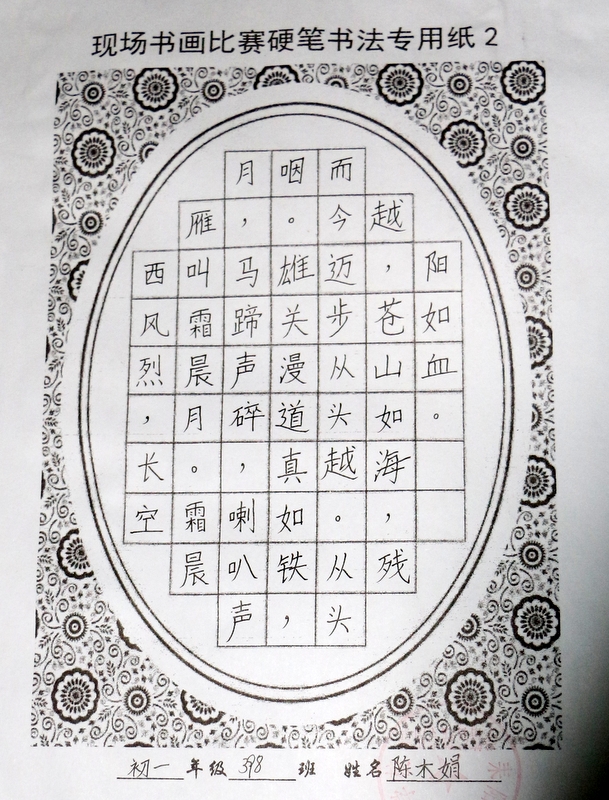 现场书画比赛硬笔书法专用纸2
西风烈，长空
雁叫霜晨月。霜晨
月，马蹄声碎，喇叭声
咽。雄关漫道真如铁，
而今迈步从头越。从头
越，苍山如海，残
阳如血。
初一年级 398 班 姓名 陈木娟